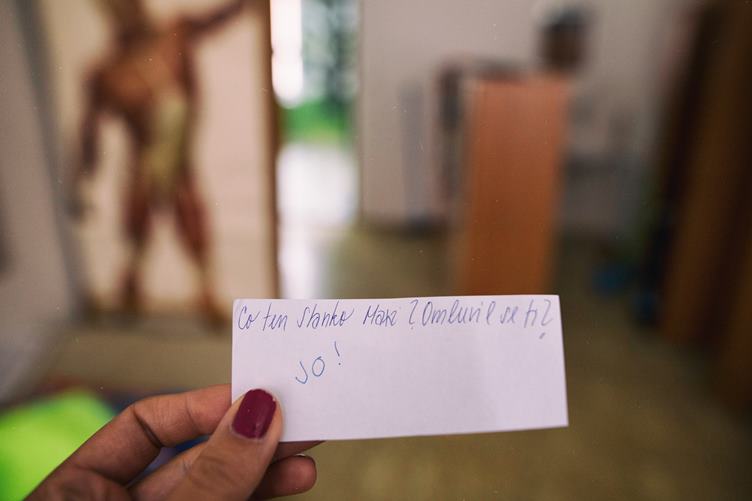 Co ten Stanko Mara? Omluvil se ti?
JO!